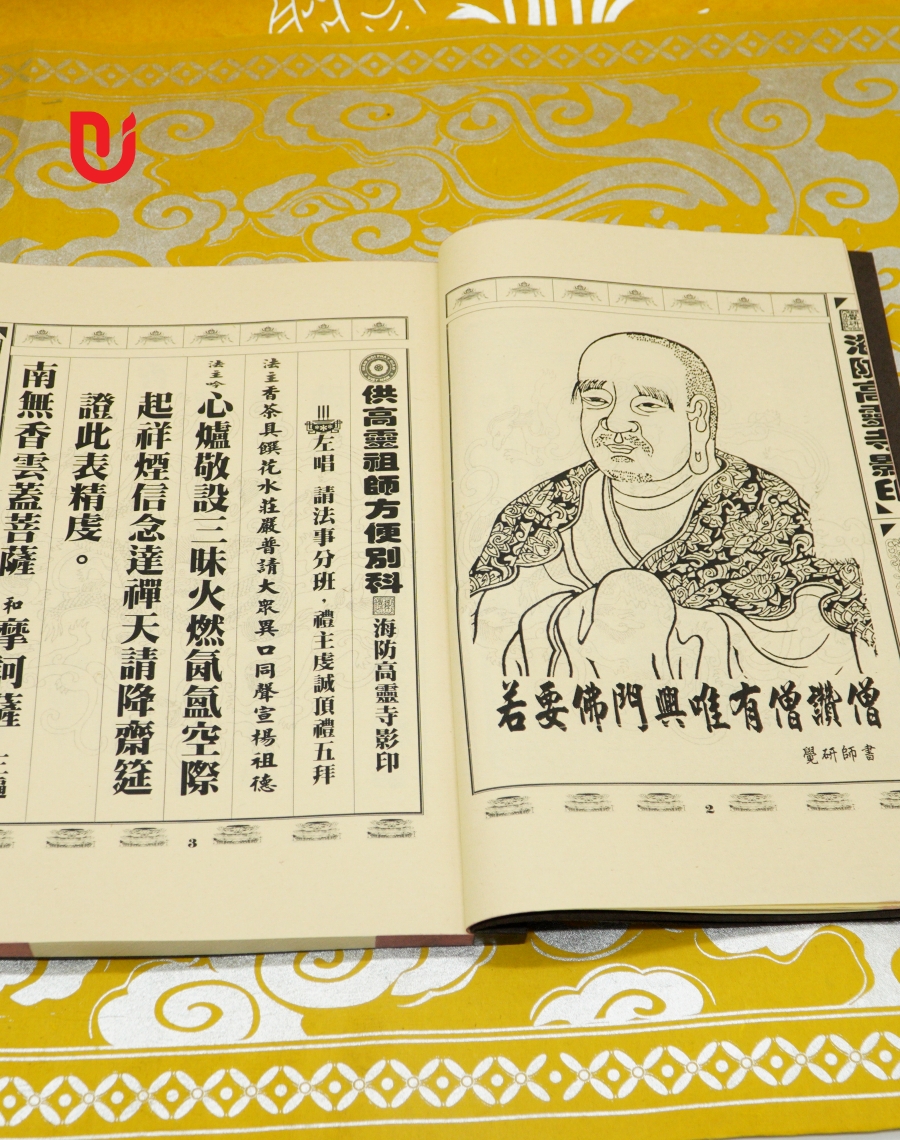 海防高靈寺影印
若要佛門興唯有僧讚僧
覺研師書
2
供高靈祖師方便別科
海防高靈寺影印
左唱 請法事分班，禮主虔誠頂禮五拜
法主香茶具饌花水莊嚴普請大眾異口同聲宣揚祖德
法主吟 心爐敬設三昧火燃氤氳空際
起祥煙信念達禪天請降齋筵
證此表精虔。
南無香雲蓋菩薩 和 摩訶薩
3